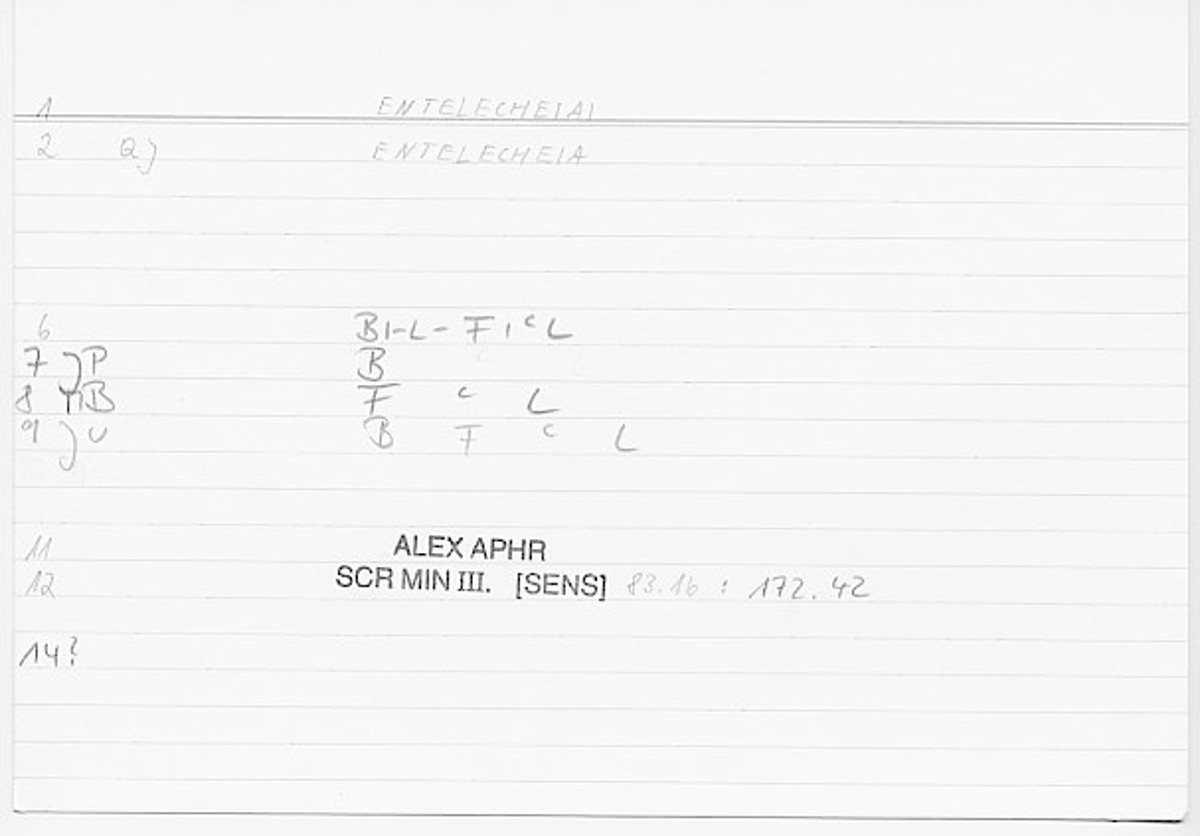 1 ENTELECHEIAI
2 Q) ENTELECHEIA
6 BI-L- F I C L
7 )P B
8 B F C L
9 )U B F C L
11 ALEX APHR
12 SCR MIN III. [SENS] 83.16 : 172.42
14?